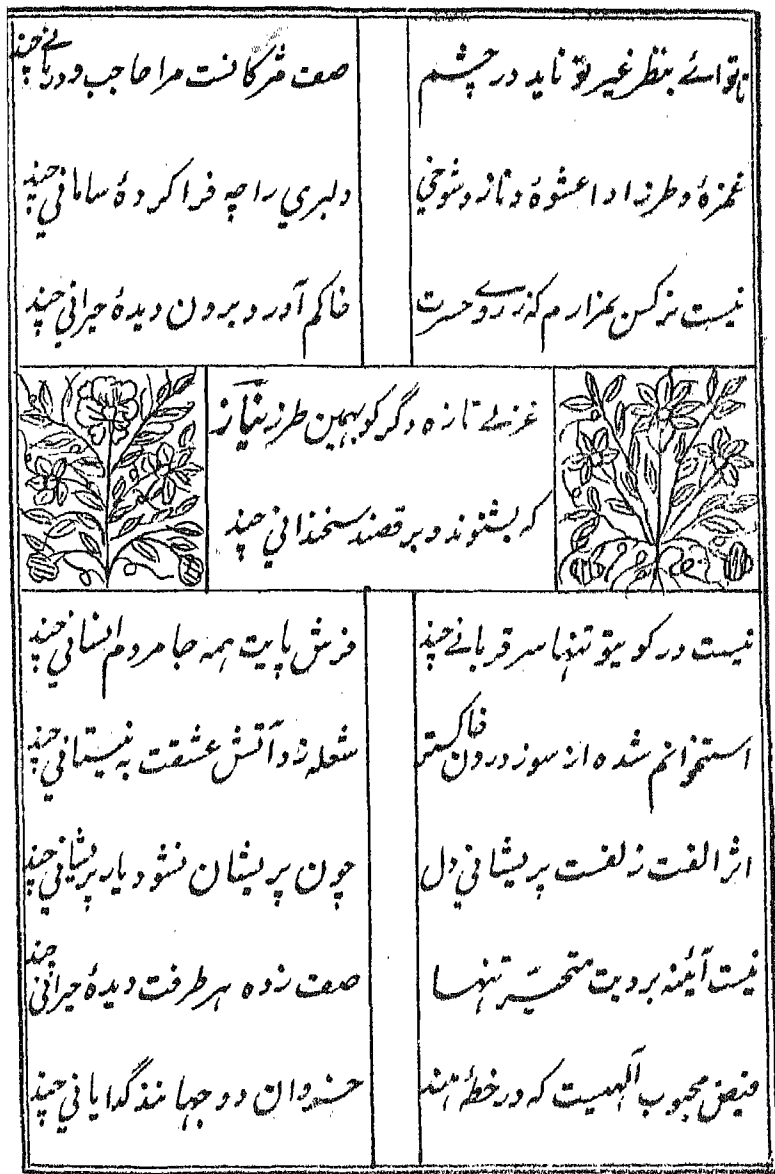 تا توائے بنظر غیر تو ناید در چشم
صف مژگانست مرا حاجب و دربانے چند
غمزۂ و طرز ادا عشوۂ و ناز و شوخي
دلبري را چه فرا کردۂ ساماني چند
نیست نرکس بمزارم که ز روے حسرت
خاکم آورد برون دیدۂ حیراني چند
غزلے تازه دگر کو بهمین طرز نیاز
که بشنوند و برقصند سخنداني چند
نیست در کویتو تنها سر قربانے چند
فرش پایت همه جا مردم انساني چند
استخوانم شده از سوز درون خاکستر
شعله زد آتش عشقت به نیستاني چند
اثر الفت زلفست پریشاني دل
چون پریشان نشود یار پریشاني چند
نیست آئینه برویت متحیّر تنها
صف زده هر طرفت دیدۂ حیراني چند
فیض محبوب آلهیست که در خطۂ هند
خسروان دو جهانند گدایاني چند